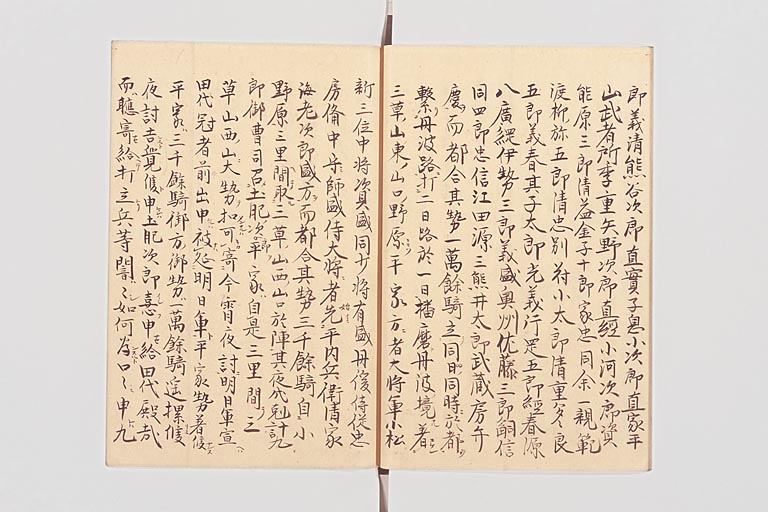 郎義清熊谷次郎直實子息小次郎直家平
山武者所季重矢野次郎直經小河次郎資
能原三郎清益金子十郎家忠同余一親範
渡柳弥五郎清忠別府小太郎清重多々良
五郎義春其子太郎光義片岡五郎經春源
八廣綱伊勢三郎義盛奥州佐藤三郎嗣信
同四郎忠信江田源三熊井太郎武蔵房弁
慶而都合其勢一萬餘騎立同日同時於都
繫丹波路打二日路於一日播磨丹波境着
三草山東山口野原平家方者大将軍小松
新三位中将資盛同少将有盛丹後侍従忠
房備中守師盛侍大将者先平内兵衛清家
海老次郎盛方而都合其勢三千餘騎自小
野原三里間取三草山西山口於陣其夜戌剋計九
郎御曹司召土肥次郎平家自是三里間三
草山西山大勢扣可寄今宵夜討明日軍宣
田代冠者前出申被延明日軍平家勢着候
平家三千餘騎御方御勢一萬餘騎遥擇候
夜討吉覺候申土肥次郎惪申給田代殿哉
而聽寄給打立兵等闇々如何為口々申九